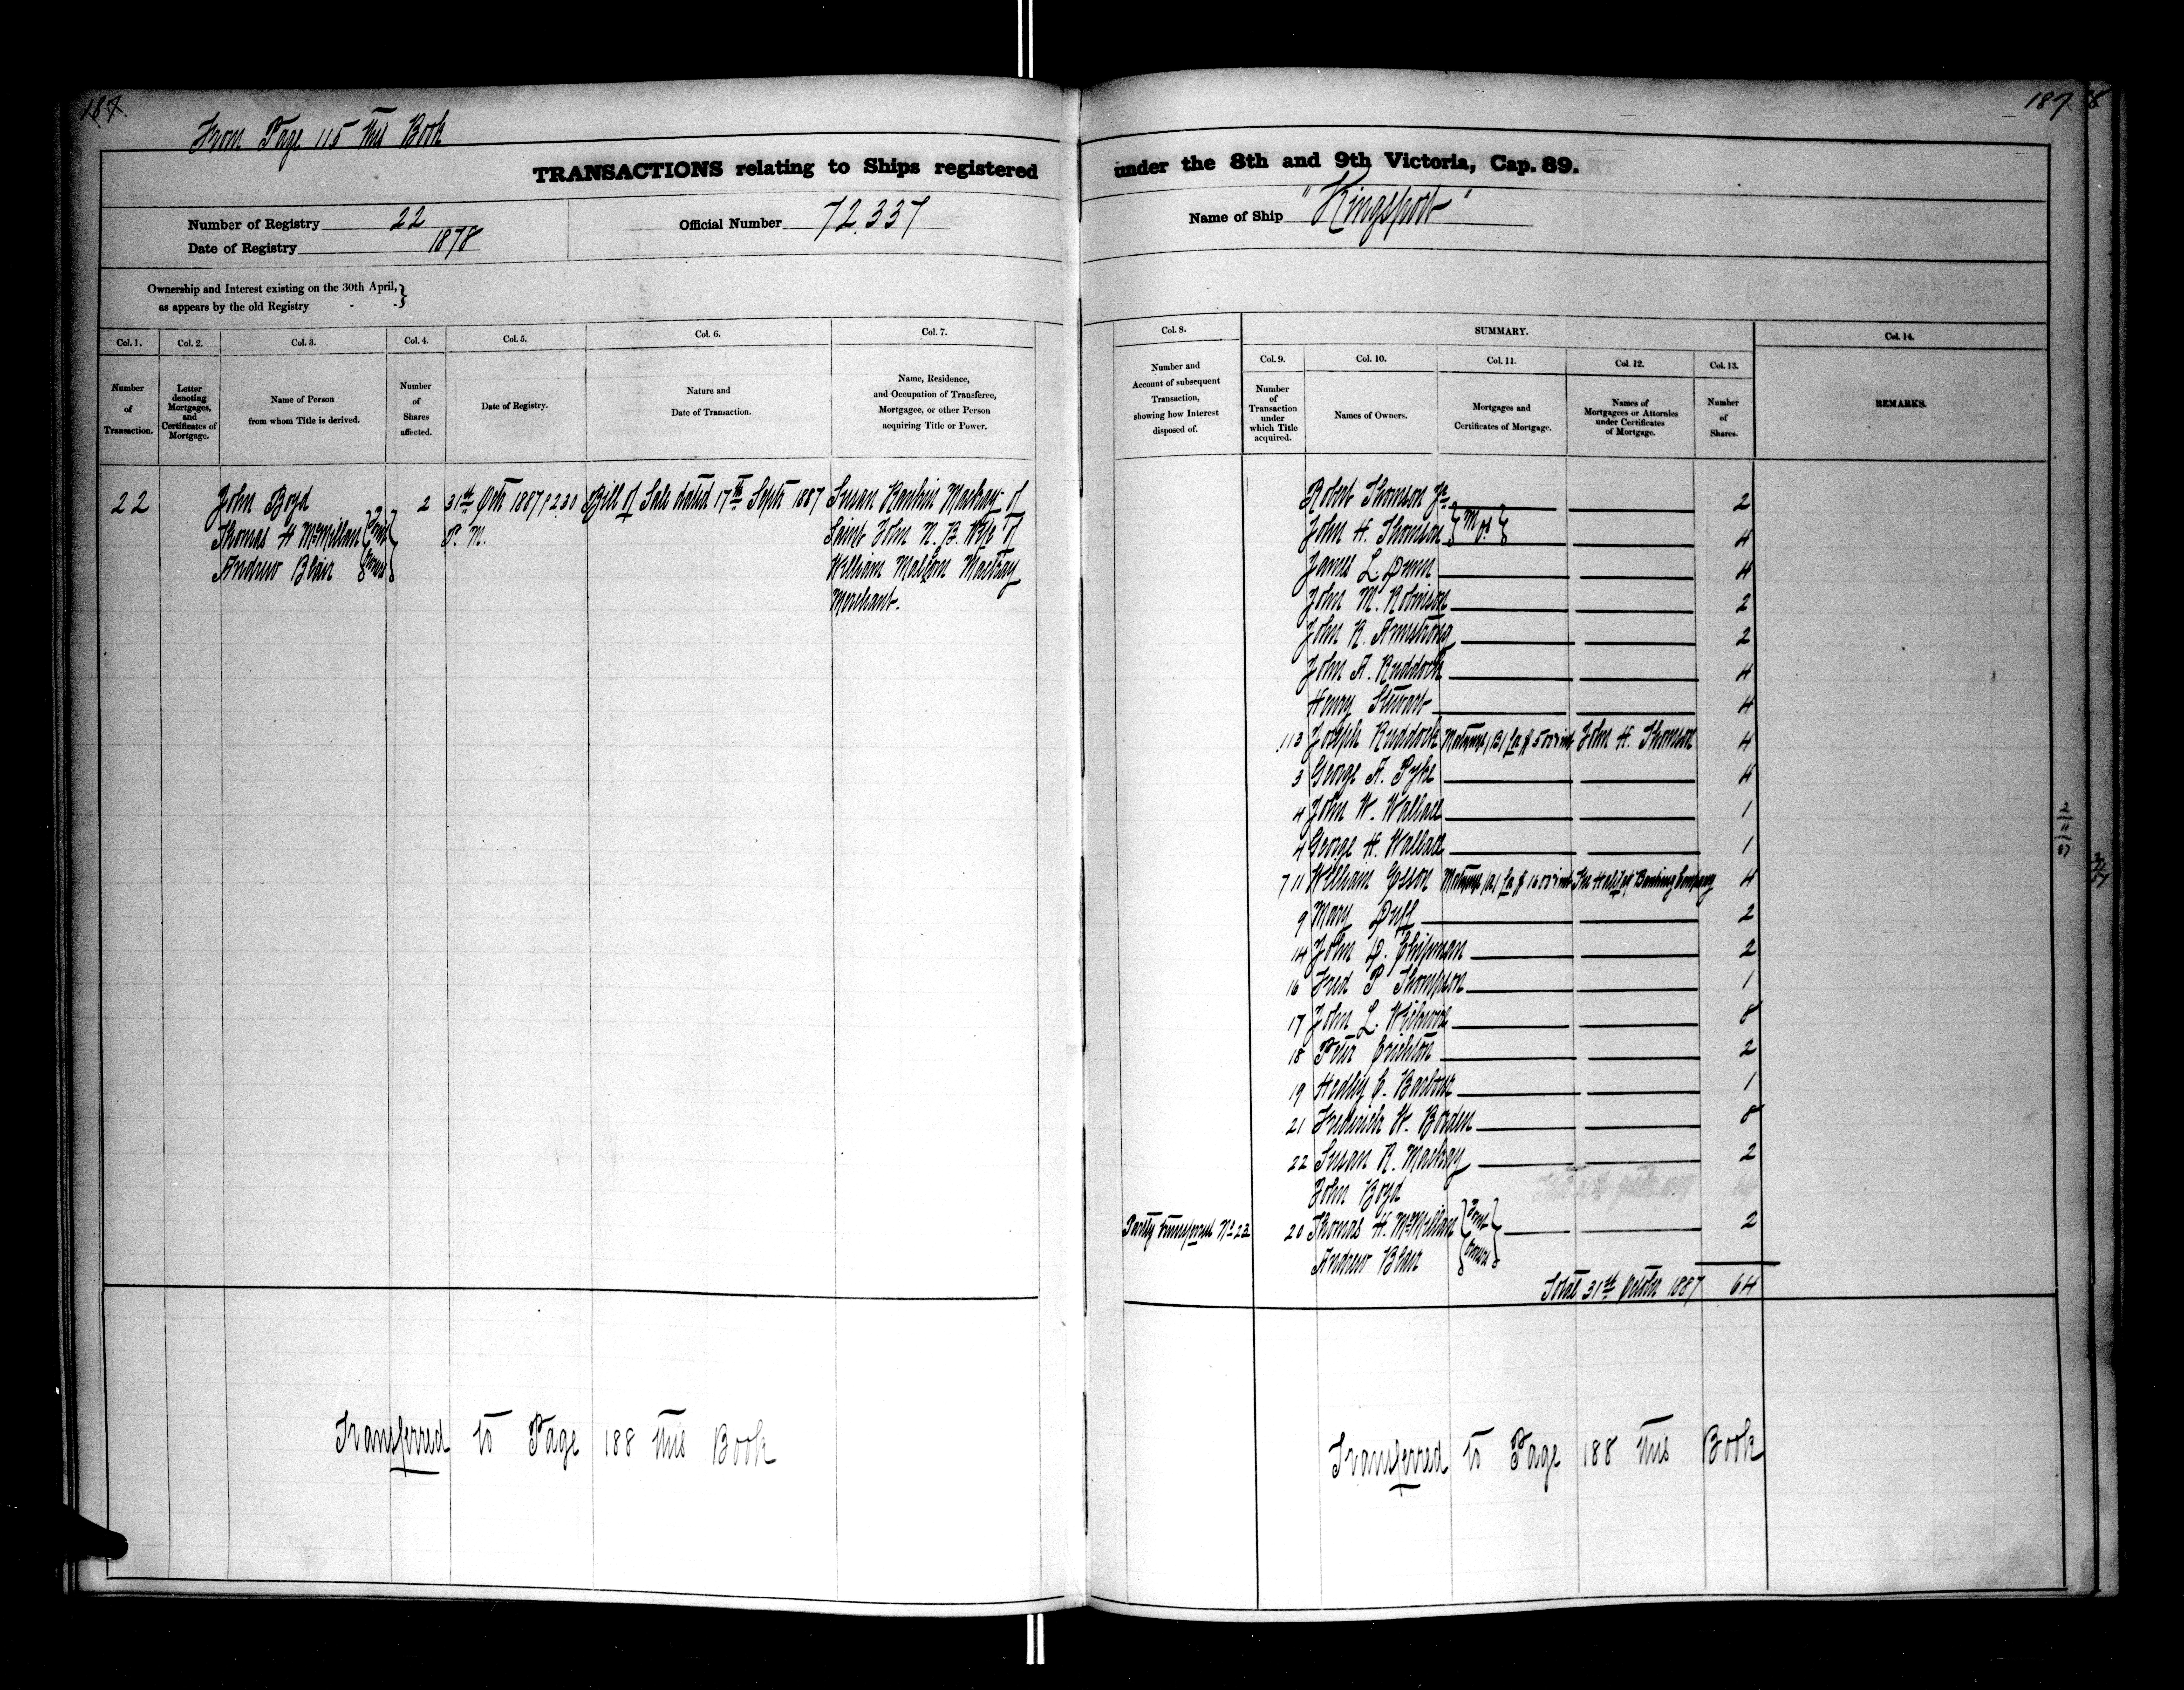 187.
From Page 115 this Book
TRANSACTIONS relating to Ships registered
Number of Registry 22
Date of Registry 1878
Official Number 72.337
Ownership and Interest existing on the 30th April,
as appears by the old Registry - - }
Col. 1. Col. 2. Col. 3. Col. 4. Col. 5. Col. 6. Col. 7.
Number of Transaction.
Letter denoting Mortgages, and Certificates of Mortgage.
Name of Person from whom Title is derived.
Number of Shares affected.
Date of Registry.
Nature and Date of Transaction.
Name, Residence, and Occupation of Transferee, Mortgagee, or other Person acquiring Title or Power.
22 John Boyd 2 31st Octr 1887 @ 2.30 Bill of Sale dated 17th Septr 1887 Susan Rankin Mackay of
Thomas H McMillan } Joint P. M. Saint John N. B. Wife of
Andrew Blair } Owners William Malcolm Mackay
Merchant.
Transferred to Page 188 this Book
187
under the 8th and 9th Victoria, Cap. 89.
Name of Ship "Kingsport"
Col. 8. SUMMARY. Col. 14.
Col. 9. Col. 10. Col. 11. Col. 12. Col. 13.
Number and Account of subsequent Transaction, showing how Interest disposed of.
Number of Transaction under which Title acquired.
Names of Owners.
Mortgages and Certificates of Mortgage.
Names of Mortgagees or Attornies under Certificates of Mortgage.
Number of Shares.
REMARKS.
Robert Thomson Jr 2
John H. Thomson } M.O. { 4
James L. Dunn 4
John M. Robinson 2
John R. Armstrong 2
John A. Ruddock 4
Henry Stewart 4
Joseph Ruddock Mortgage (B) for $ 500 int John H. Thomson 4
3 George A. Pyke 4
4 John W. Wallace 1
4 George H. Wallace 1
7 11 William Esson Mortgage (A) for $ 1600 int The Halifax Banking Company 4
9 Mary Duff 2
14 John D. Chipman 2
16 Fred P Thompson 1
17 John L. 8
18 Peter Crichton 2
19 Hedley C. 1
21 Frederick W. Borden 8
22 Susan R. Mackay 2
John Boyd
Partly Transferred No 22 20 Thomas H. McMillan } Joint 2
Andrew Blair } Owners
Total 31st October 1887 64
Transferred to Page 188 this Book